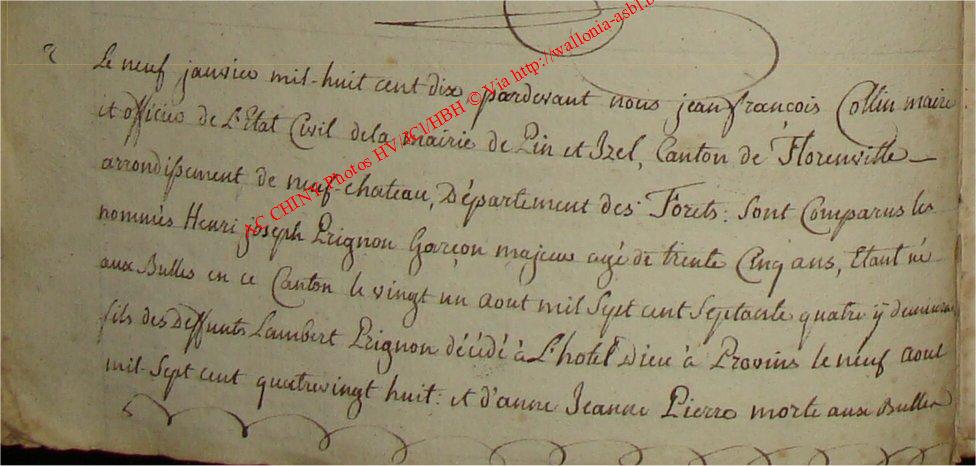 2 Le neuf janvier mil-huit cent dix pardevant nous jean françois Collin maire
et officier de L'Etat Civil dela mairie de Pin et Izel, Canton de Florenville
arrondissement de neuf-chateau, Département des Forets: Sont Comparus les
nommés Henri joseph Prignon Garçon majeur agé de trente Cinq ans, Etant né
aux Bulles en ce Canton le vingt un aout mil Sept cent Septante quatre ÿ demeurant
fils des Deffunts Lambert Prignon décédé à L'hotel Dieu à Provins le neuf aout
mil-Sept cent quatrevingt huit: et d'anne Jeanne Pierre morte aux Bulles
AC CHINY Photos HV/JCl/HBH © Via http://wallonia-asbl.b